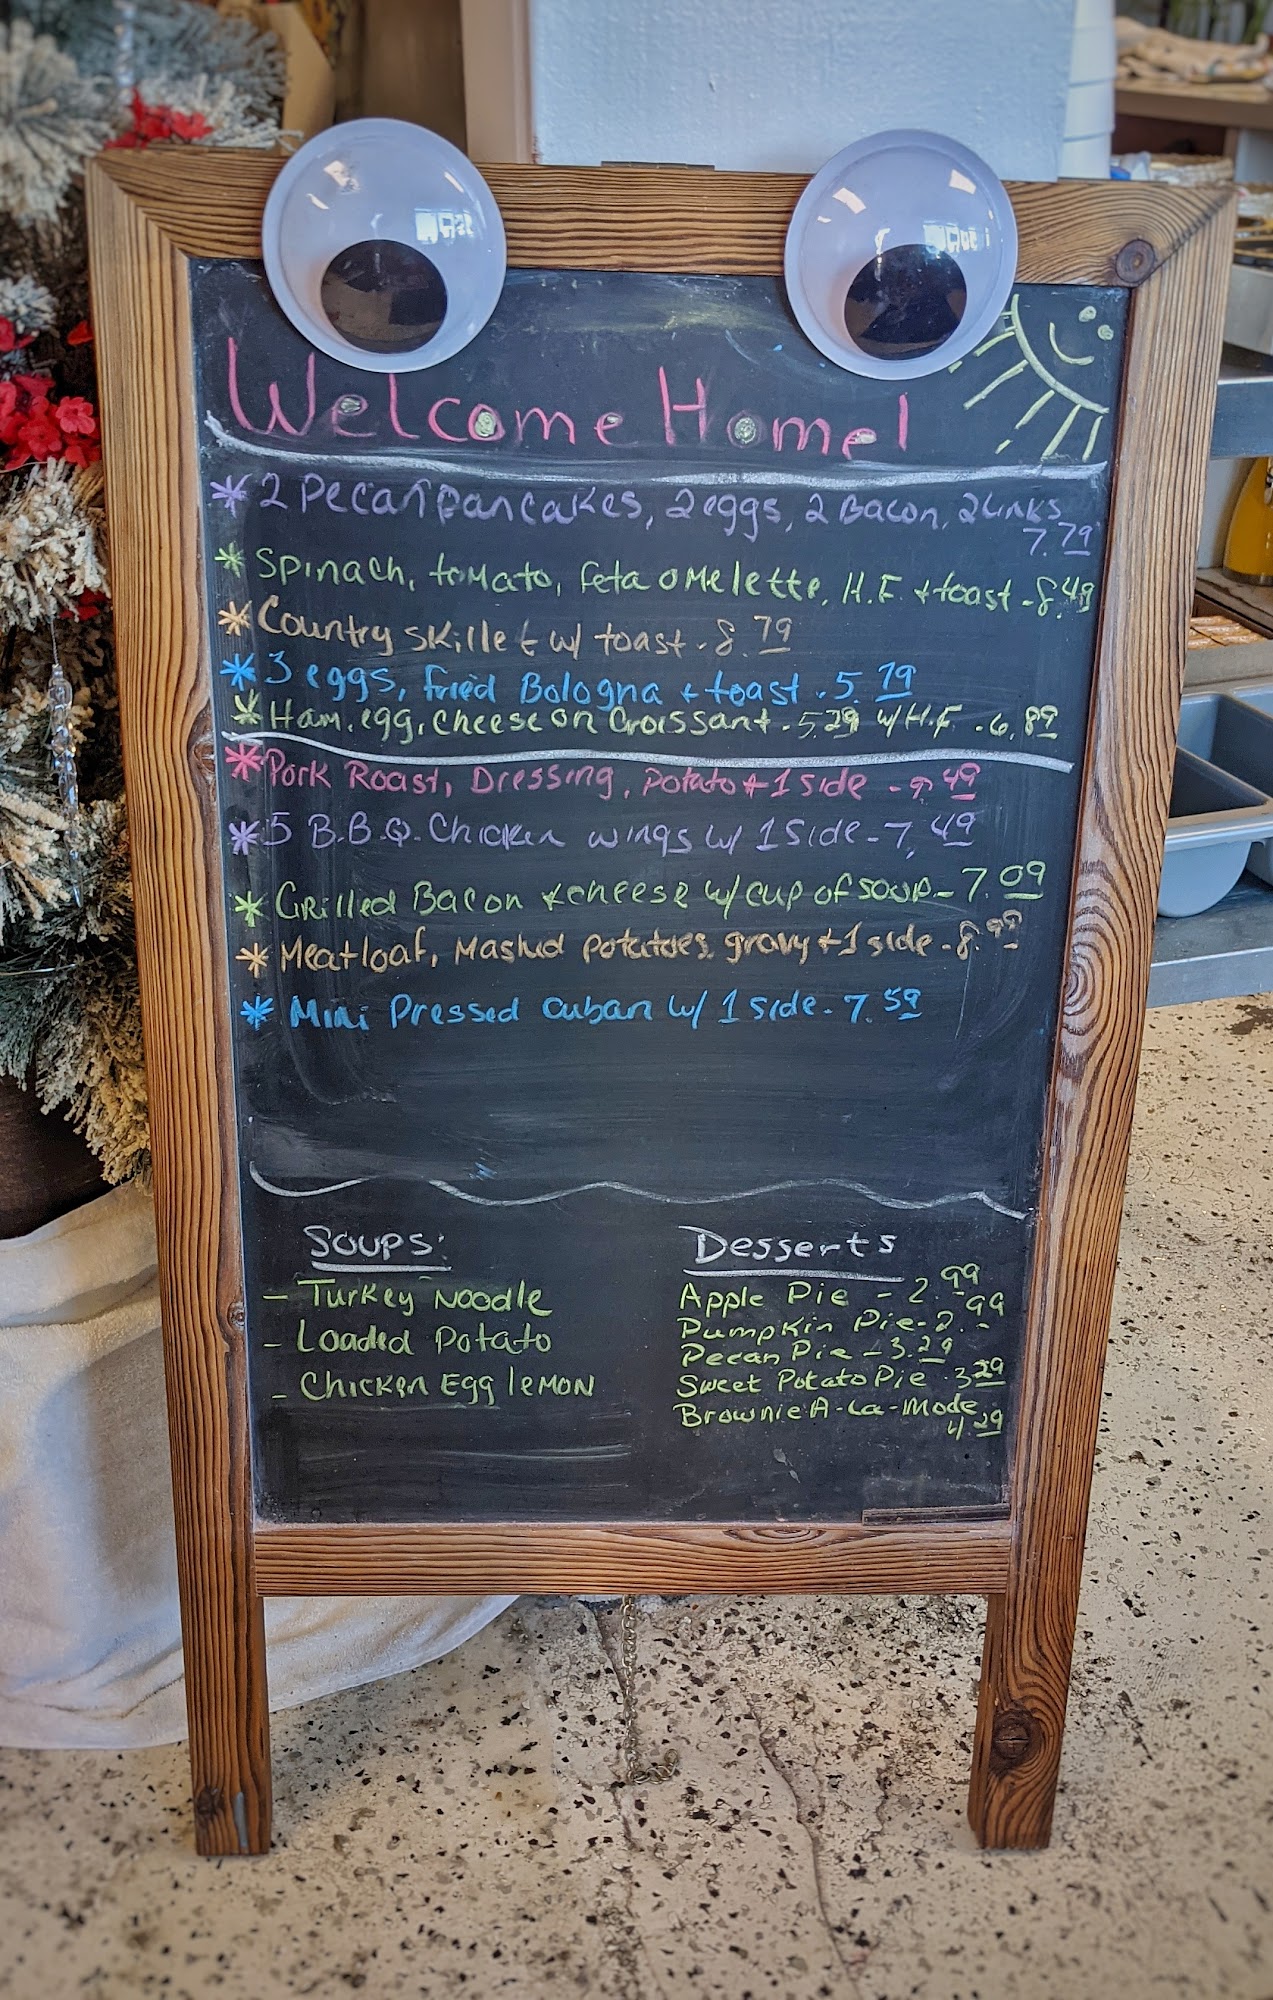 Welcome Home!
* 2 Pecan pancakes, 2 eggs, 2 Bacon, 2 links
7.79
* Spinach, tomato, feta omelette, H.F. + toast - 8.49
* Country skillet w/ toast - 8.79
* 3 eggs, fried Bologna + toast - 5.79
* Ham, egg, cheese on Croissant - 5.29 w/ H.F. - 6.89
* Pork Roast, Dressing, potato + 1 side - 9.49
* 5 B.B.Q. Chicken wings w/ 1 side - 7.49
* Grilled Bacon + cheese w/ cup of soup - 7.09
* Meatloaf, Mashed potatoes, gravy + 1 side - 8.99
* Mini Pressed Cuban w/ 1 side - 7.59
Soups:
- Turkey Noodle
- Loaded Potato
- Chicken Egg lemon
Desserts
Apple Pie - 2.99
Pumpkin Pie - 2.99
Pecan Pie - 3.29
Sweet Potato Pie - 3.29
Brownie A-La-Mode
4.29